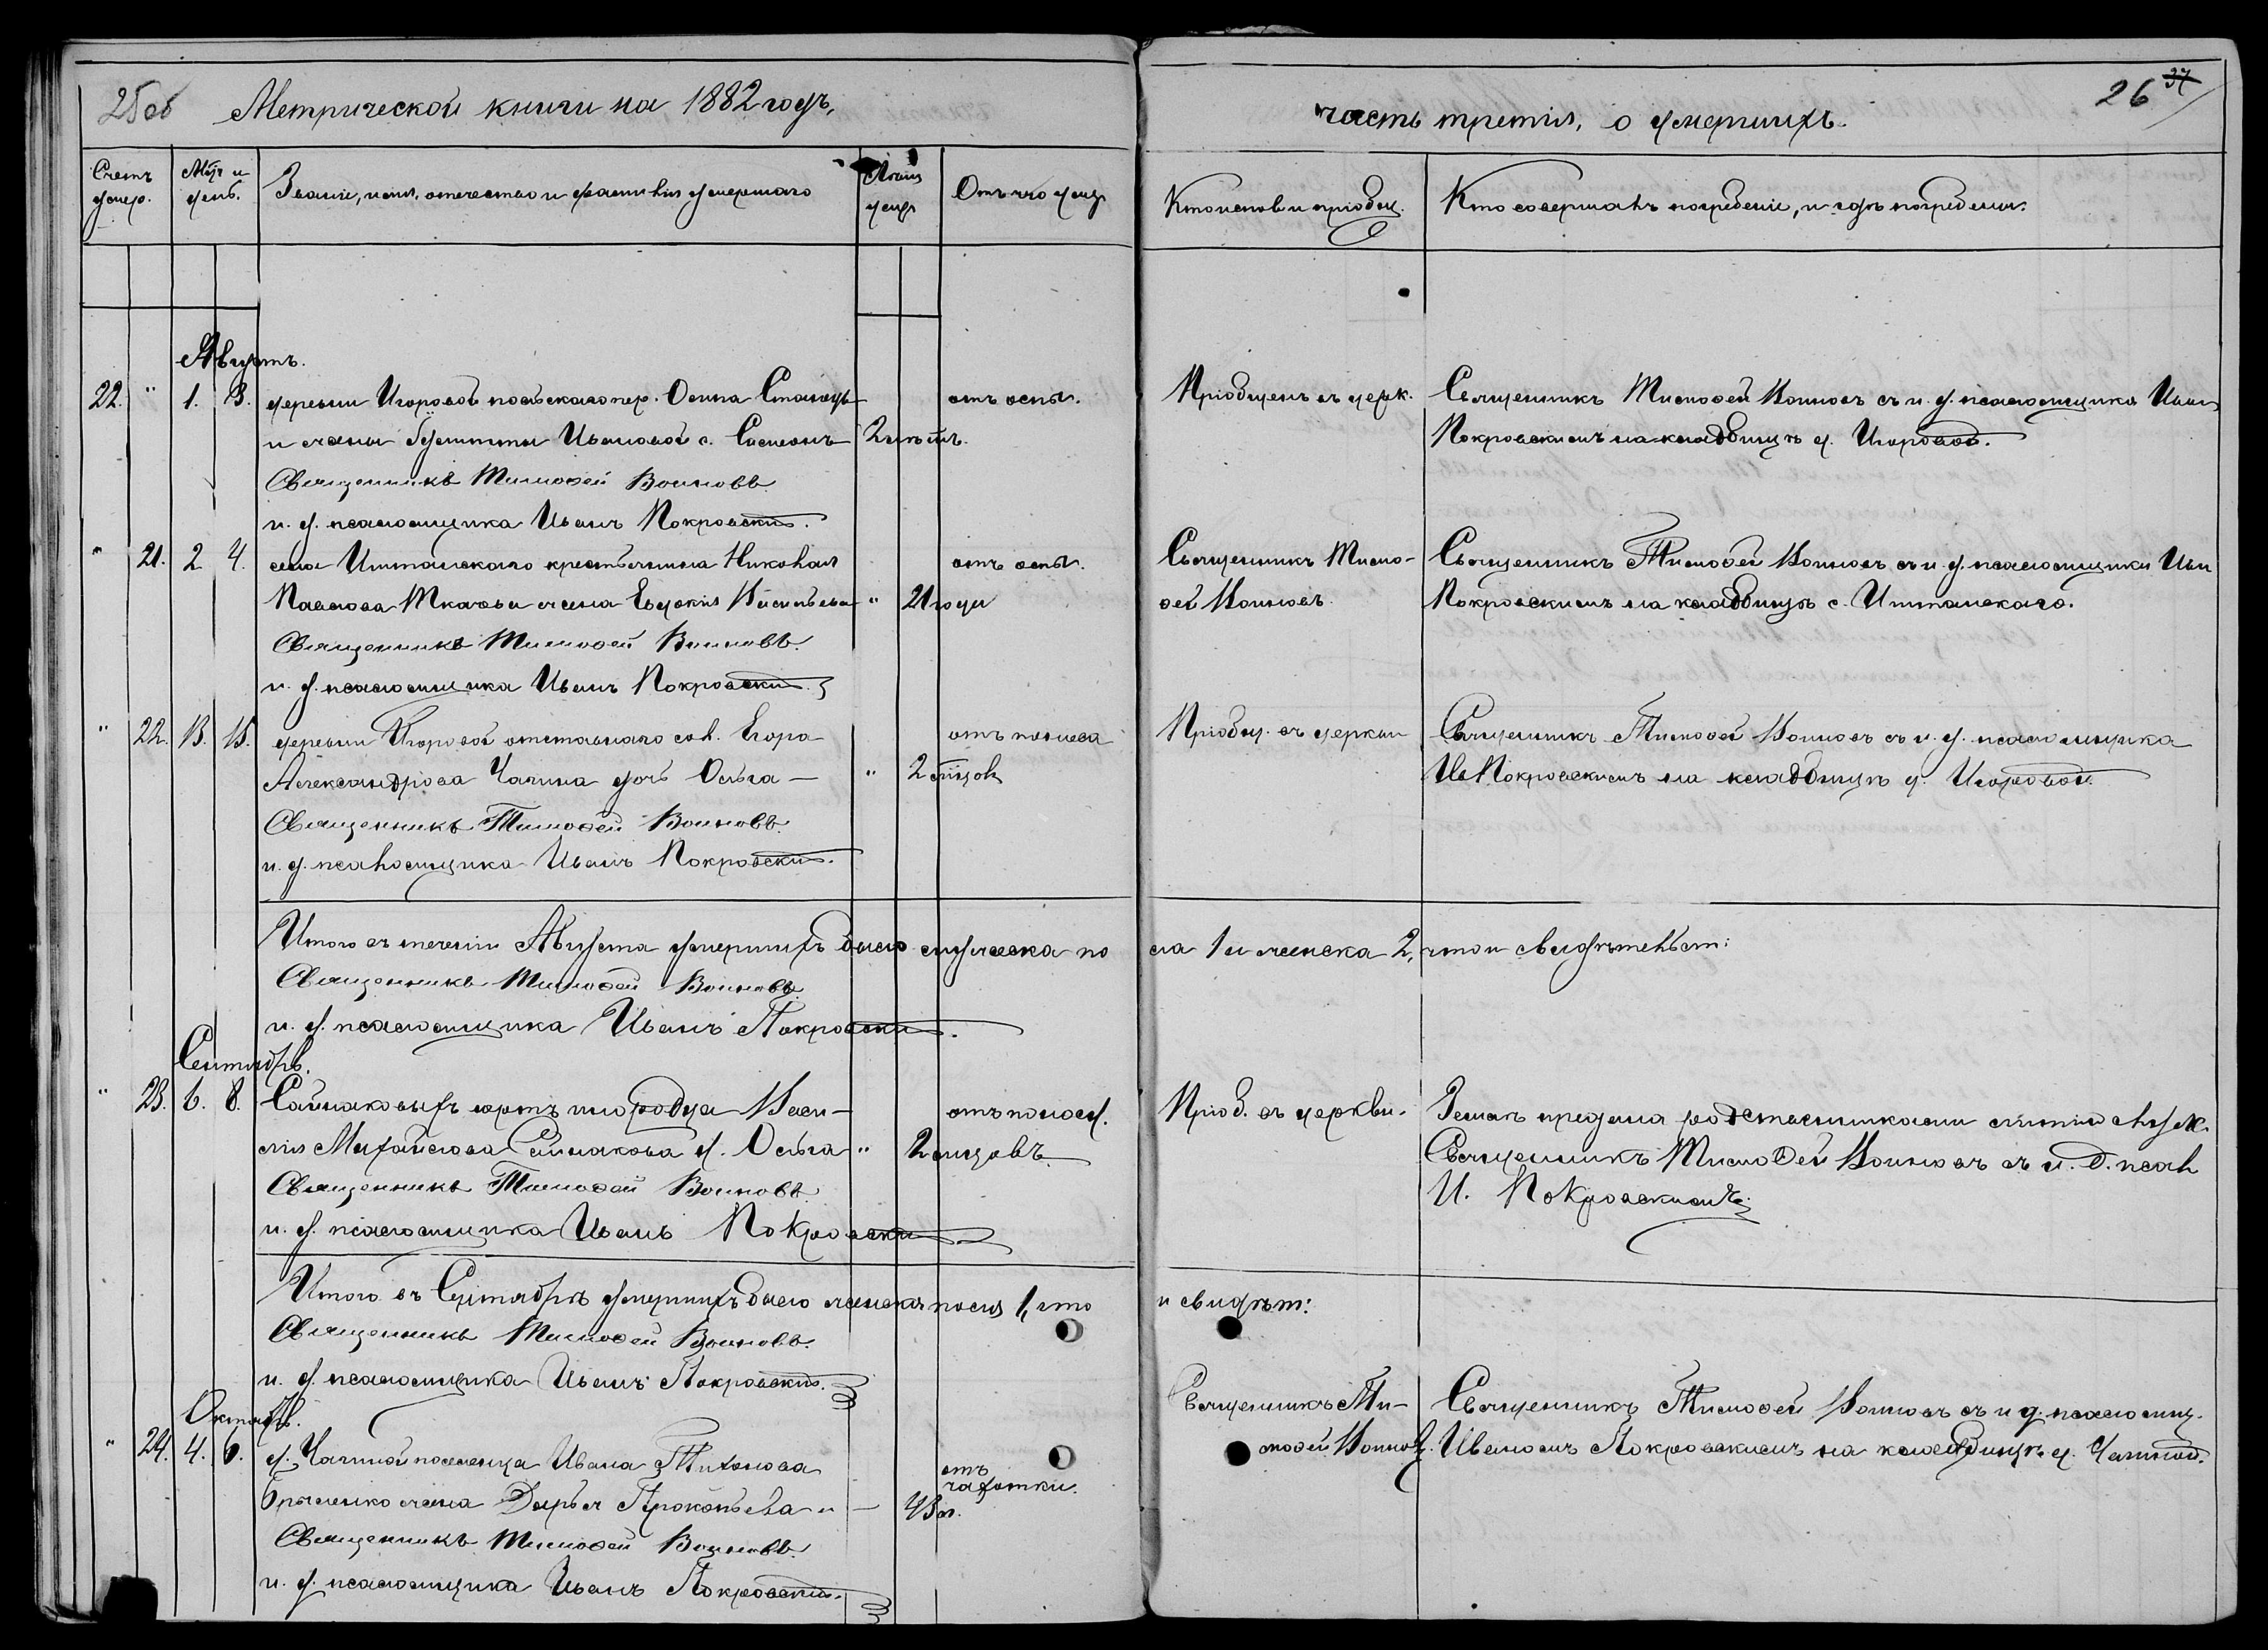 25об Метрической книги на 1882 годъ,
часть третія, о умершихъ.
26 37
Счетъ умер.
Мѣс и день.
Званіе, имя, отечество и фамилія умершаго
Лѣта умер
Отъ чего умер
Кто исповѣ и пріобщ.
Кто совершалъ погребеніе, и гдѣ погребены.
Августъ.
22. " 1. 3. деревни Игоровой польскаго пер. Осипа
и жены Иванов с. 2 лѣтъ.
отъ оспы.
Пріобщенъ въ церк.
Священникъ Тимофей Воиновъ съ и. д. псаломщика Иван
Покровскимъ на кладбищѣ д. Игоровой.
Священникъ Тимофей Воиновъ.
и. д. псаломщика Иванъ Покровскій.
" 21. 2 4. села Иштанскаго крестьянина Николая
Павлова Ткачева жена Евдокія Васильева " 21 года
отъ оспы.
Священникъ Тимо-
фей Воиновъ.
Священникъ Тимофей Воиновъ съ и. д. псаломщика Ива
Покровскимъ на кладбищѣ с. Иштанскаго.
Священникъ Тимофей Воиновъ.
и. д. псаломщика Иванъ Покровскій.
" 22. 13. 15. деревни Игоровой отставнаго сол. Егора
Александрова Чапина дочь Ольга — " 2 мѣсяцов
отъ поноса
Пріобщ. въ церкви
Священникъ Тимофей Воиновъ съ и. д. псаломщика
Ив Покровскимъ на кладбищѣ д. Игоровой.
Священникъ Тимофей Воиновъ.
и. д. псаломщика Иванъ Покровскій.
Итого въ теченіи Августа умершихъ было мужеска по
ла 1 и женска 2, что и свидѣтельст:
Священникъ Тимофей Воиновъ
и. д. псаломщика Иванъ Покровскій.
Сентябрь.
" 23. 6. 8. Саймаковыхъ юртъ инородца Васи-
лія Михайлова Саймакова д. Ольга " 2 мѣсяцовъ
отъ поноса.
Пріоб. въ церкви.
Земля предана родственниками
Священникъ Тимофей Воиновъ съ и. д. псал
И. Покровскимъ.
Священникъ Тимофей Воиновъ.
и. д. псаломщика Иванъ Покровскій
Итого въ Сентябрѣ умершихъ было женска пола 1, что
и свидѣт:
Священникъ Тимофей Воиновъ.
и. д. псаломщика Иванъ Покровскій.
Октябрь.
" 24. 4. 6. д. Чапиной поселенца Ивана Тихонова
жена Дарья Прокопьева — 43 л.
отъ чахотки.
Священникъ Ти-
мофей Воиновъ.
Священникъ Тимофей Воиновъ съ и д. псаломщ.
Иваномъ Покровскимъ на кладбищѣ д. Чапиной.
Священникъ Тимофей Воиновъ.
и. д. псаломщика Иванъ Покровскій.